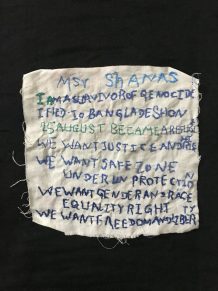 MSY SHANAS
I AM A SURVIVOR OF GENOCIDE
I FLED TO BANGLADESH ON
25 AUGUST BECAME A REFU
WE WANT JUSTICE AND
WE WANT SAFE ZONE
UNDER UN PROTECTION
WE WANT GENDER AND RACE
EQUALITY RIGHT
WE WANT FREEDOM AND LIBER TY